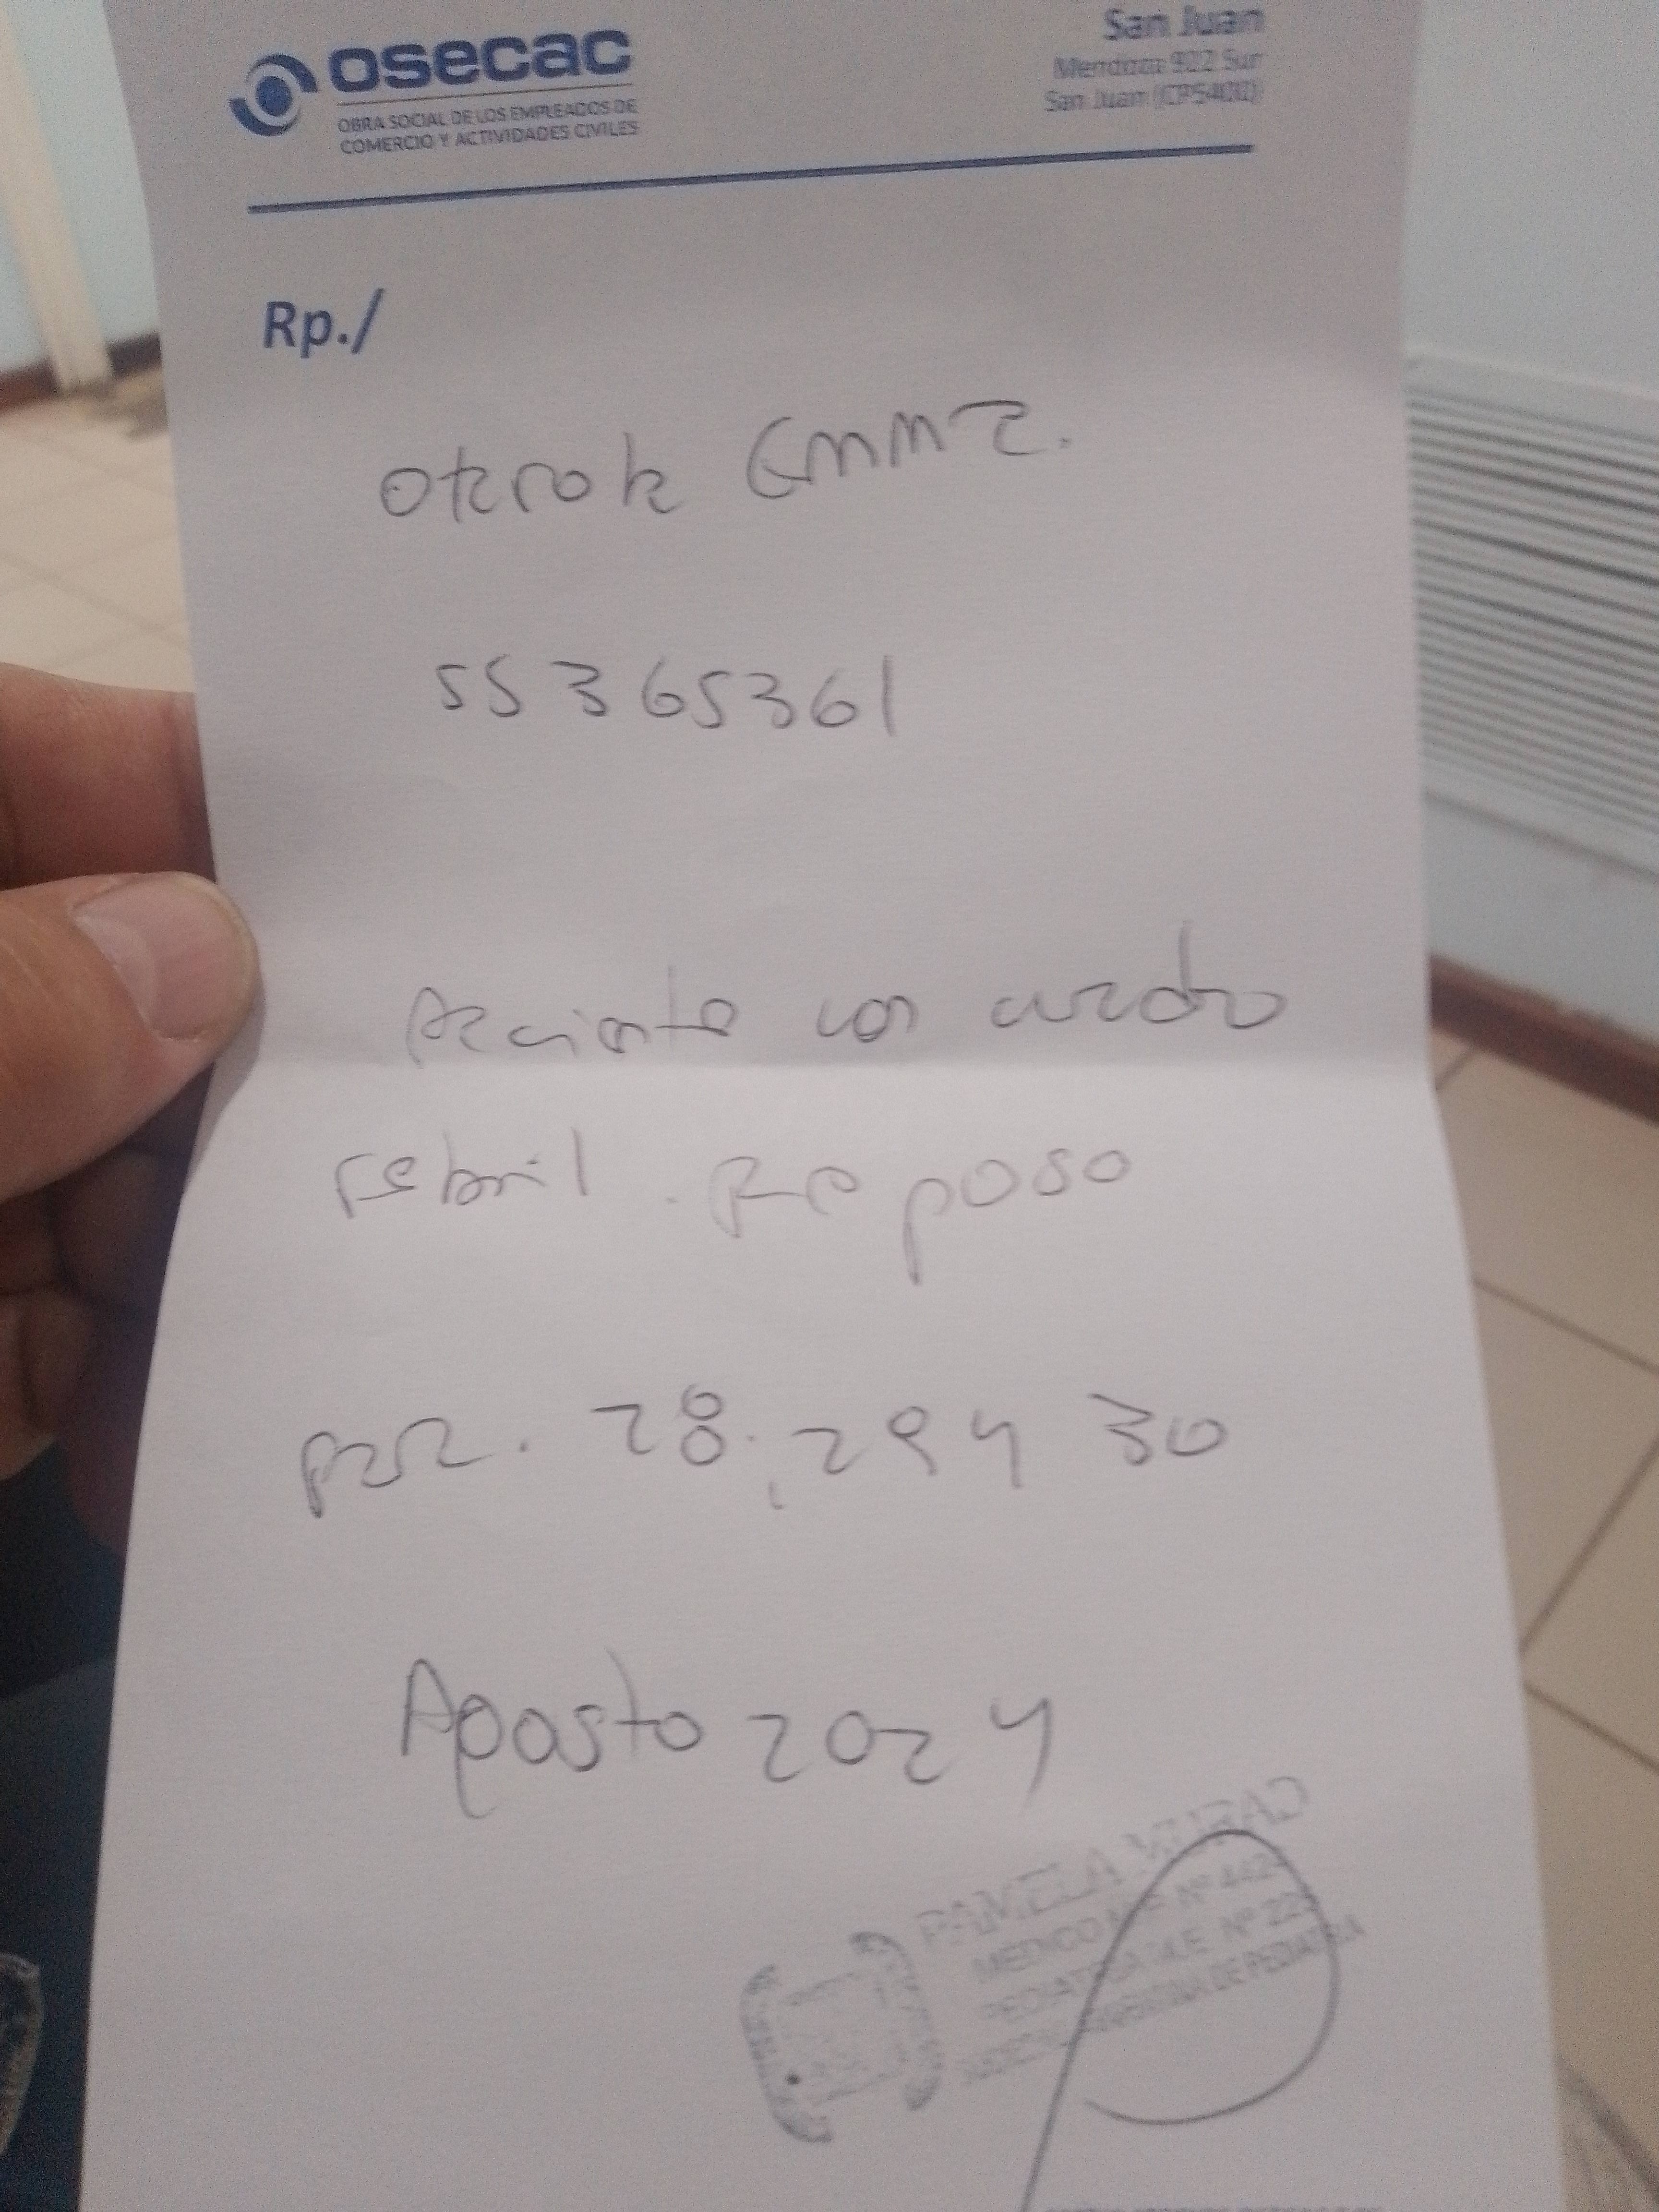 osecac
OBRA SOCIAL DE LOS EMPLEADOS DE
COMERCIO Y ACTIVIDADES CIVILES
San Juan
Mendoza 922 Sur
San Juan (CP5400)
Rp./
Emma.
55365361
Paciente con cuadro
febril. Reposo
para. 28, 29 y 30
Agosto 2024
PAMELA
MEDICO Nº
PEDIATRA Nº
ARGENTINA DE PEDIATRIA